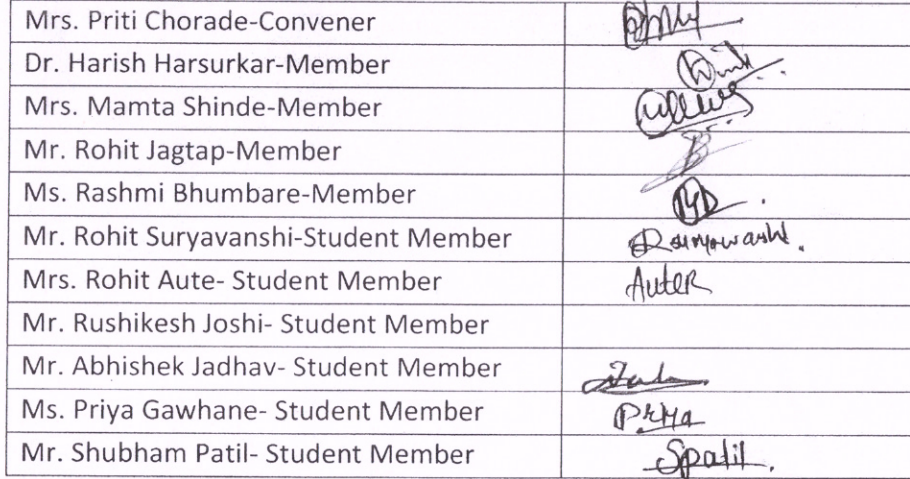 Mrs. Priti Chorade-Convener
Dr. Harish Harsurkar-Member
Mrs. Mamta Shinde-Member
Mr. Rohit Jagtap-Member
Ms. Rashmi Bhumbare-Member
Mr. Rohit Suryavanshi-Student Member Rsuryawashi.
Mrs. Rohit Aute- Student Member AuteR
Mr. Rushikesh Joshi- Student Member
Mr. Abhishek Jadhav- Student Member
Ms. Priya Gawhane- Student Member Priya
Mr. Shubham Patil- Student Member Spatil.